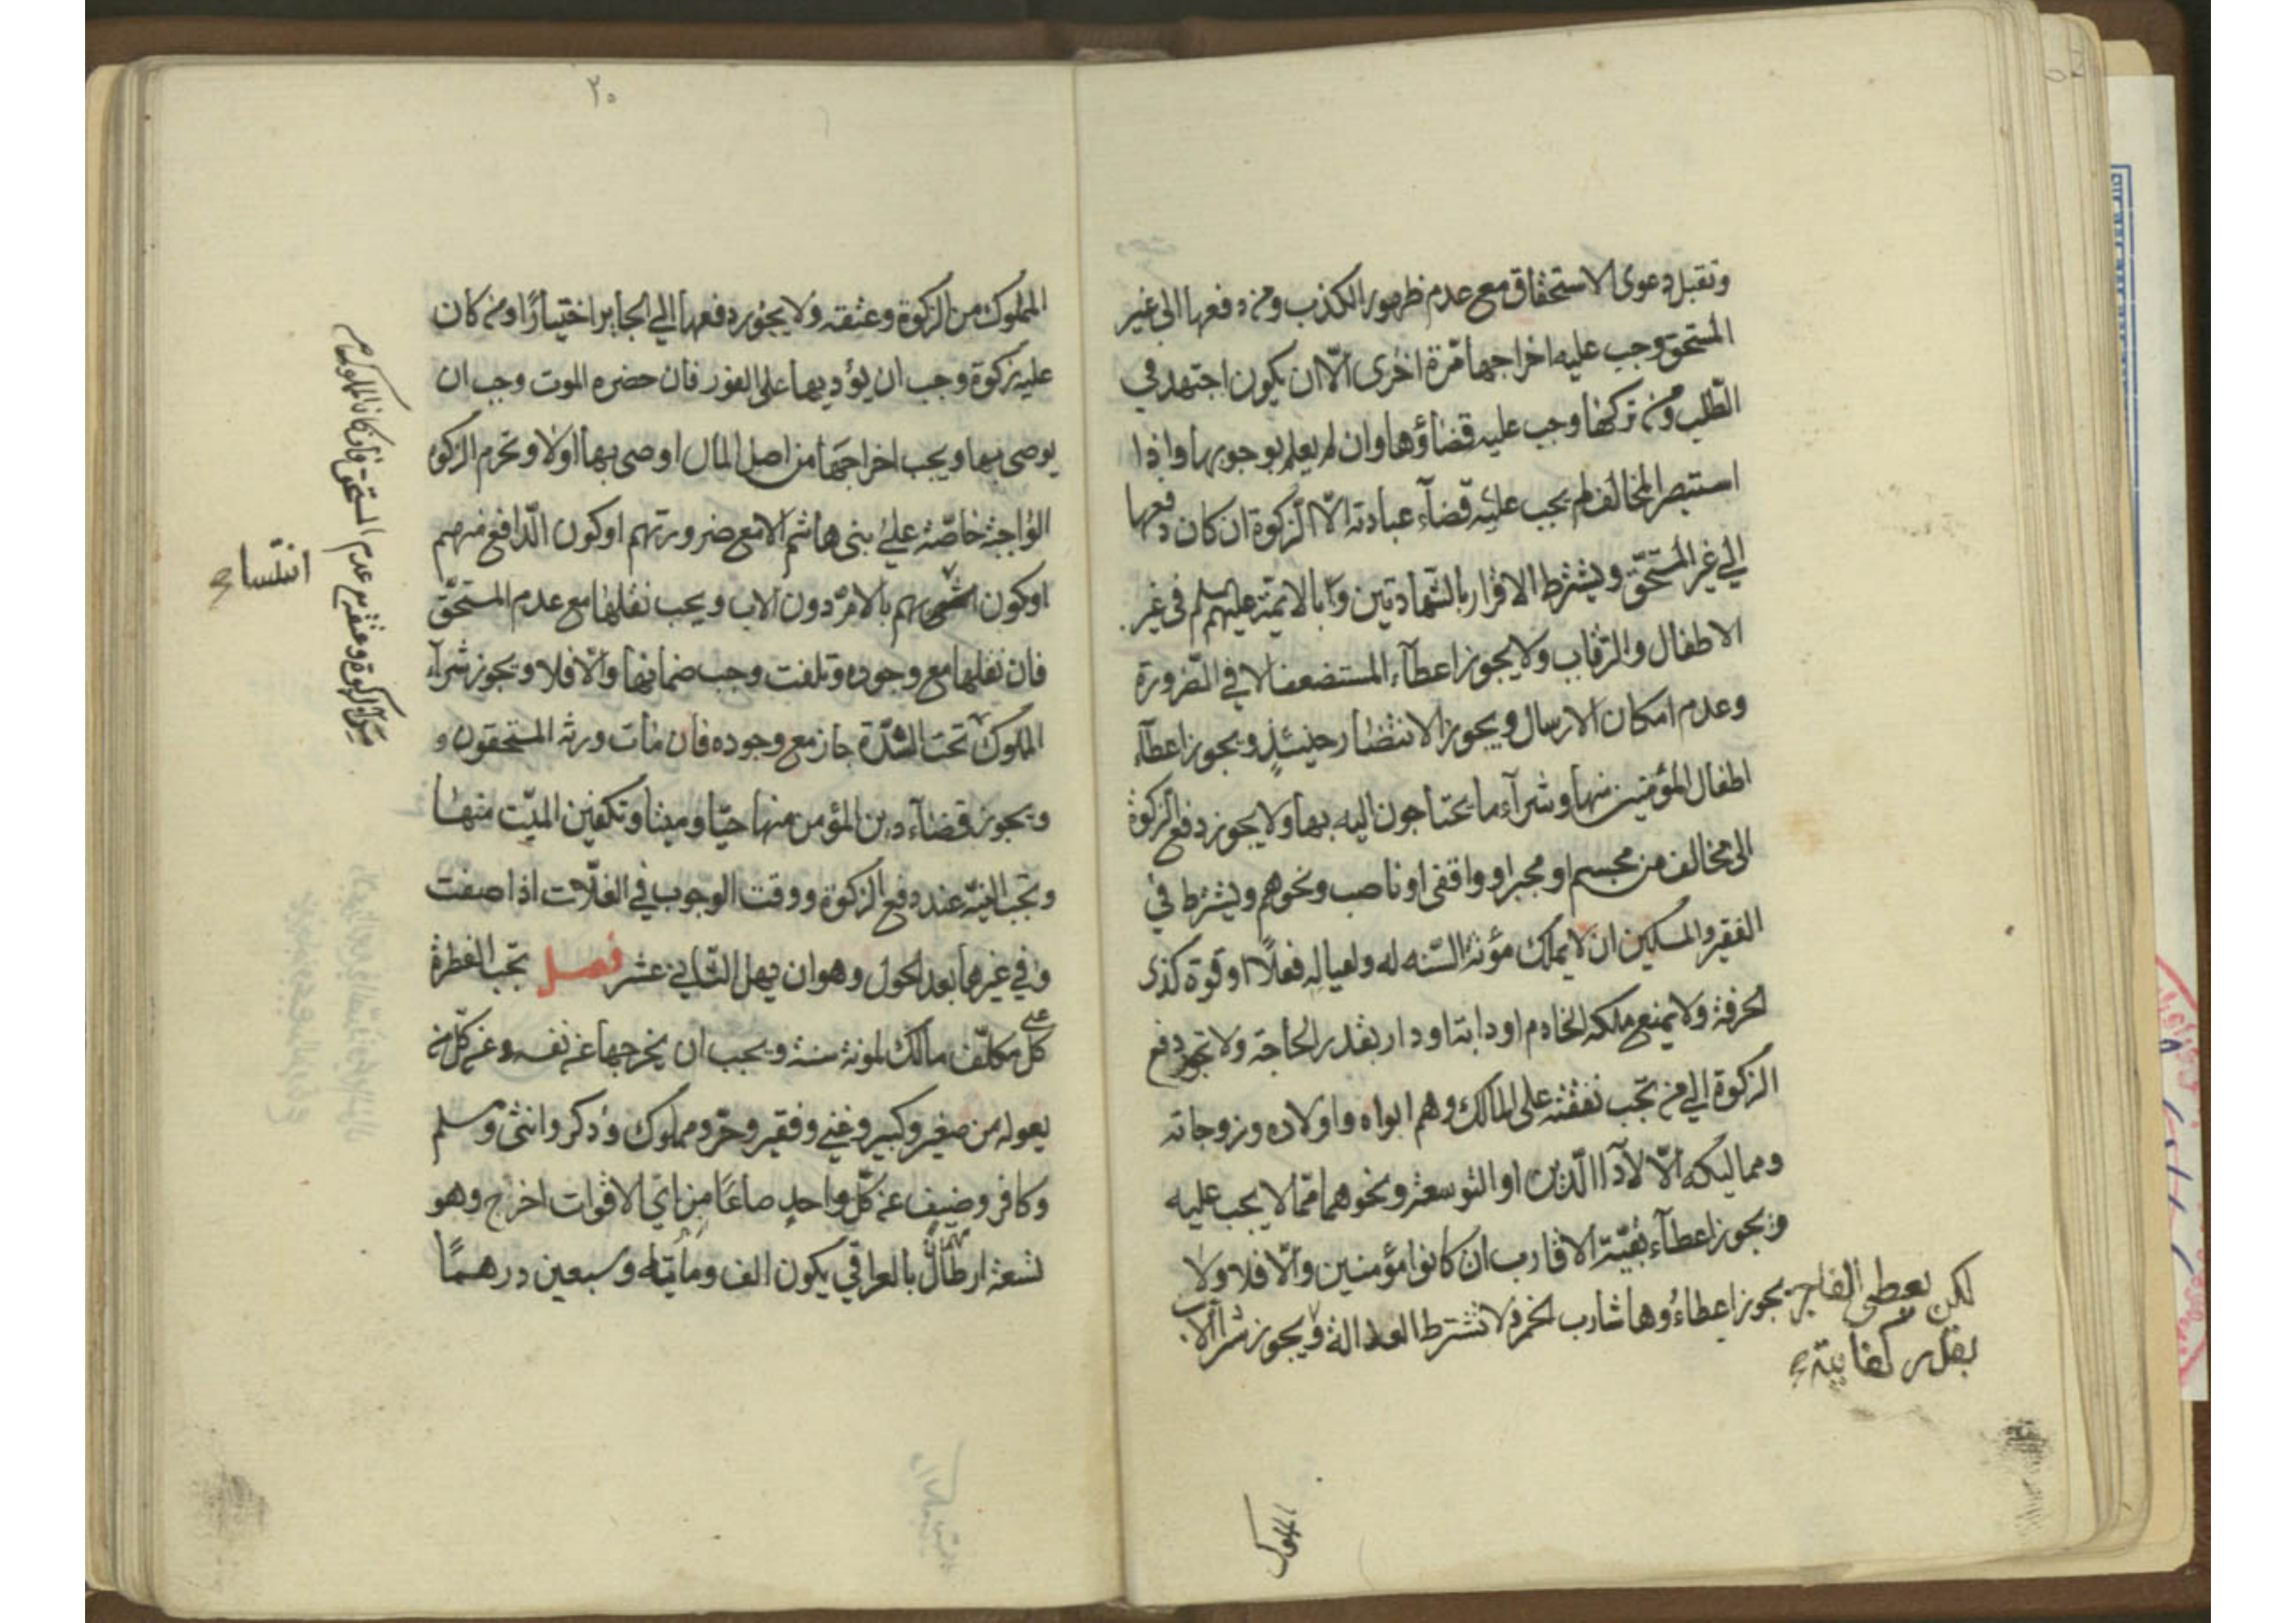 وتقبل دعوى الاستحقاق مع عدم ظهور الكذب ومن دفعها الى غير
المستحق وجب عليه اخراجها مرّة اخرى الّا ان يكون اجتهد في
الطّلب ومن تركها وجب عليه قضاؤها وان لم يعلم بوجوبها واذا
استبصر المخالف لم يجب عليه قضآء عبادته الّا الزكوة ان كان دفعها
الي غير المستحقّ ويشترط الاقرار بالشّهادتين و بالائمّة عليهم في غير
الاطفال والرّقاب ولا يجوز اعطآء المستضعف الا في الضّرورة
وعدم امكان الارسال ويجوز الانتضار حينئذٍ ويجوز اعطآء
اطفال المؤمنين منها وشرآء ما يحتاجون اليه بها ولا يجوز دفع الزكوة
الى مخالف من مجسم او مجبر او واقفى او ناصب ونحوهم ويشترط في
الفقير والمسكين ان لا يملك مؤنة السّنه له ولعياله فعلًا او قوة كذى
الحرفة ولا يمنع ملكه الخادم او دابتا او دار بقدر الحاجة ولا تجوز دفع
الزكوة الي من تجب نفقته على المالك وهم ابواه واولاده وزوجاته
ومماليكه الّا لادآ الدّين او التوسعة ونحوهما ممّا لا يجب عليه
ويجوز اعطآء بقيّة الاقارب ان كانوا مؤمنين والّا فلا ولا
يجوز اعطاءُوها شارب الخمر ولا تشترط العدالة ويجوز شرآ الاب
لكن يعطى الفاجر
بقدر كفايته
المملوك
٢٠
المملوك من الزكوة وعتقه ولا يجوز دفعها الي الجابر اختيارًا ومن كان
عليه زكوة وجب ان يؤديها على الفور فان حضره الموت وجب ان
يوصى بها ويجب اخراجها من اصل المال اوصى بها اولا وتحرم الزكوه
الواجبة خاصّة على بنى هاشم الا مع ضرورتهم او كون الدّافع منهم
او كون بهم بالامّ دون الاب ويجب نقلها مع عدم المستحقّ
فان نقلها مع وجوده وتلفت وجب ضمانها والّا فلا ويجوز شرآء
المملوك تحت الشدّة جاز مع وجوده فان مات ورثه المستحقون و
ويجوز قضآء دين المؤمن منها حيّا وميتا وتكفين الميّت منها
وتجب النيّة عند دفع الزكوة ووقت الوجوب في الغلّات اذا صفت
وفي غيرها بعد الحول وهو ان يهل الثّاني عشر فصل تجب الفطرة
على كل مكلّف مالك لمونة سنة ويجب ان يخرجها عن نفسه وعن كلّ من
يعوله من صغير وكبير وغني وفقير وحرّ ومملوك وذكر وانثى ومسلم
وكافر وضيف عن كلّ واحدٍ صاعًا من اىّ الاقوات اخرج وهو
تسعة ارطال بالعراقي يكون الف ومأية وسبعين درهمًا
انتسا
الزكوة وعتقه مع عدم المستحق فان كان المملوك